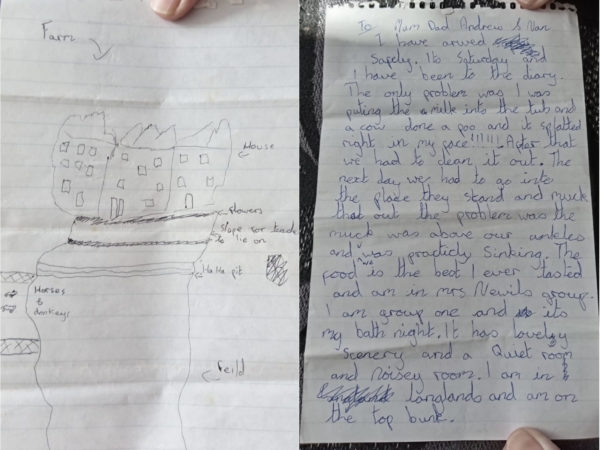 Farm
House
flowers
slope for teach
to lie on
Ha Ha pit
Horses
&
donkeys
feild
To Mam Dad Andrew & Nan
I have arived
Safely. Its Saturday and
I have been to the diary.
The only problem was I was
puting the milk into the tub and
a cow done a poo and it splatted
right in my face!!!!!! After that
we had to clean it out. The
next day we had to go into
the place they stand and muck
that out the problem was the
muck was above our ankles
and was practicly sinking. The
food is the best I ever tasted
and am in mrs Nevils group.
I am group one and its
my bath night. It has lovely
scenery and a Quiet room
and noisey room. I am in
langlands and am on
the top bunk.